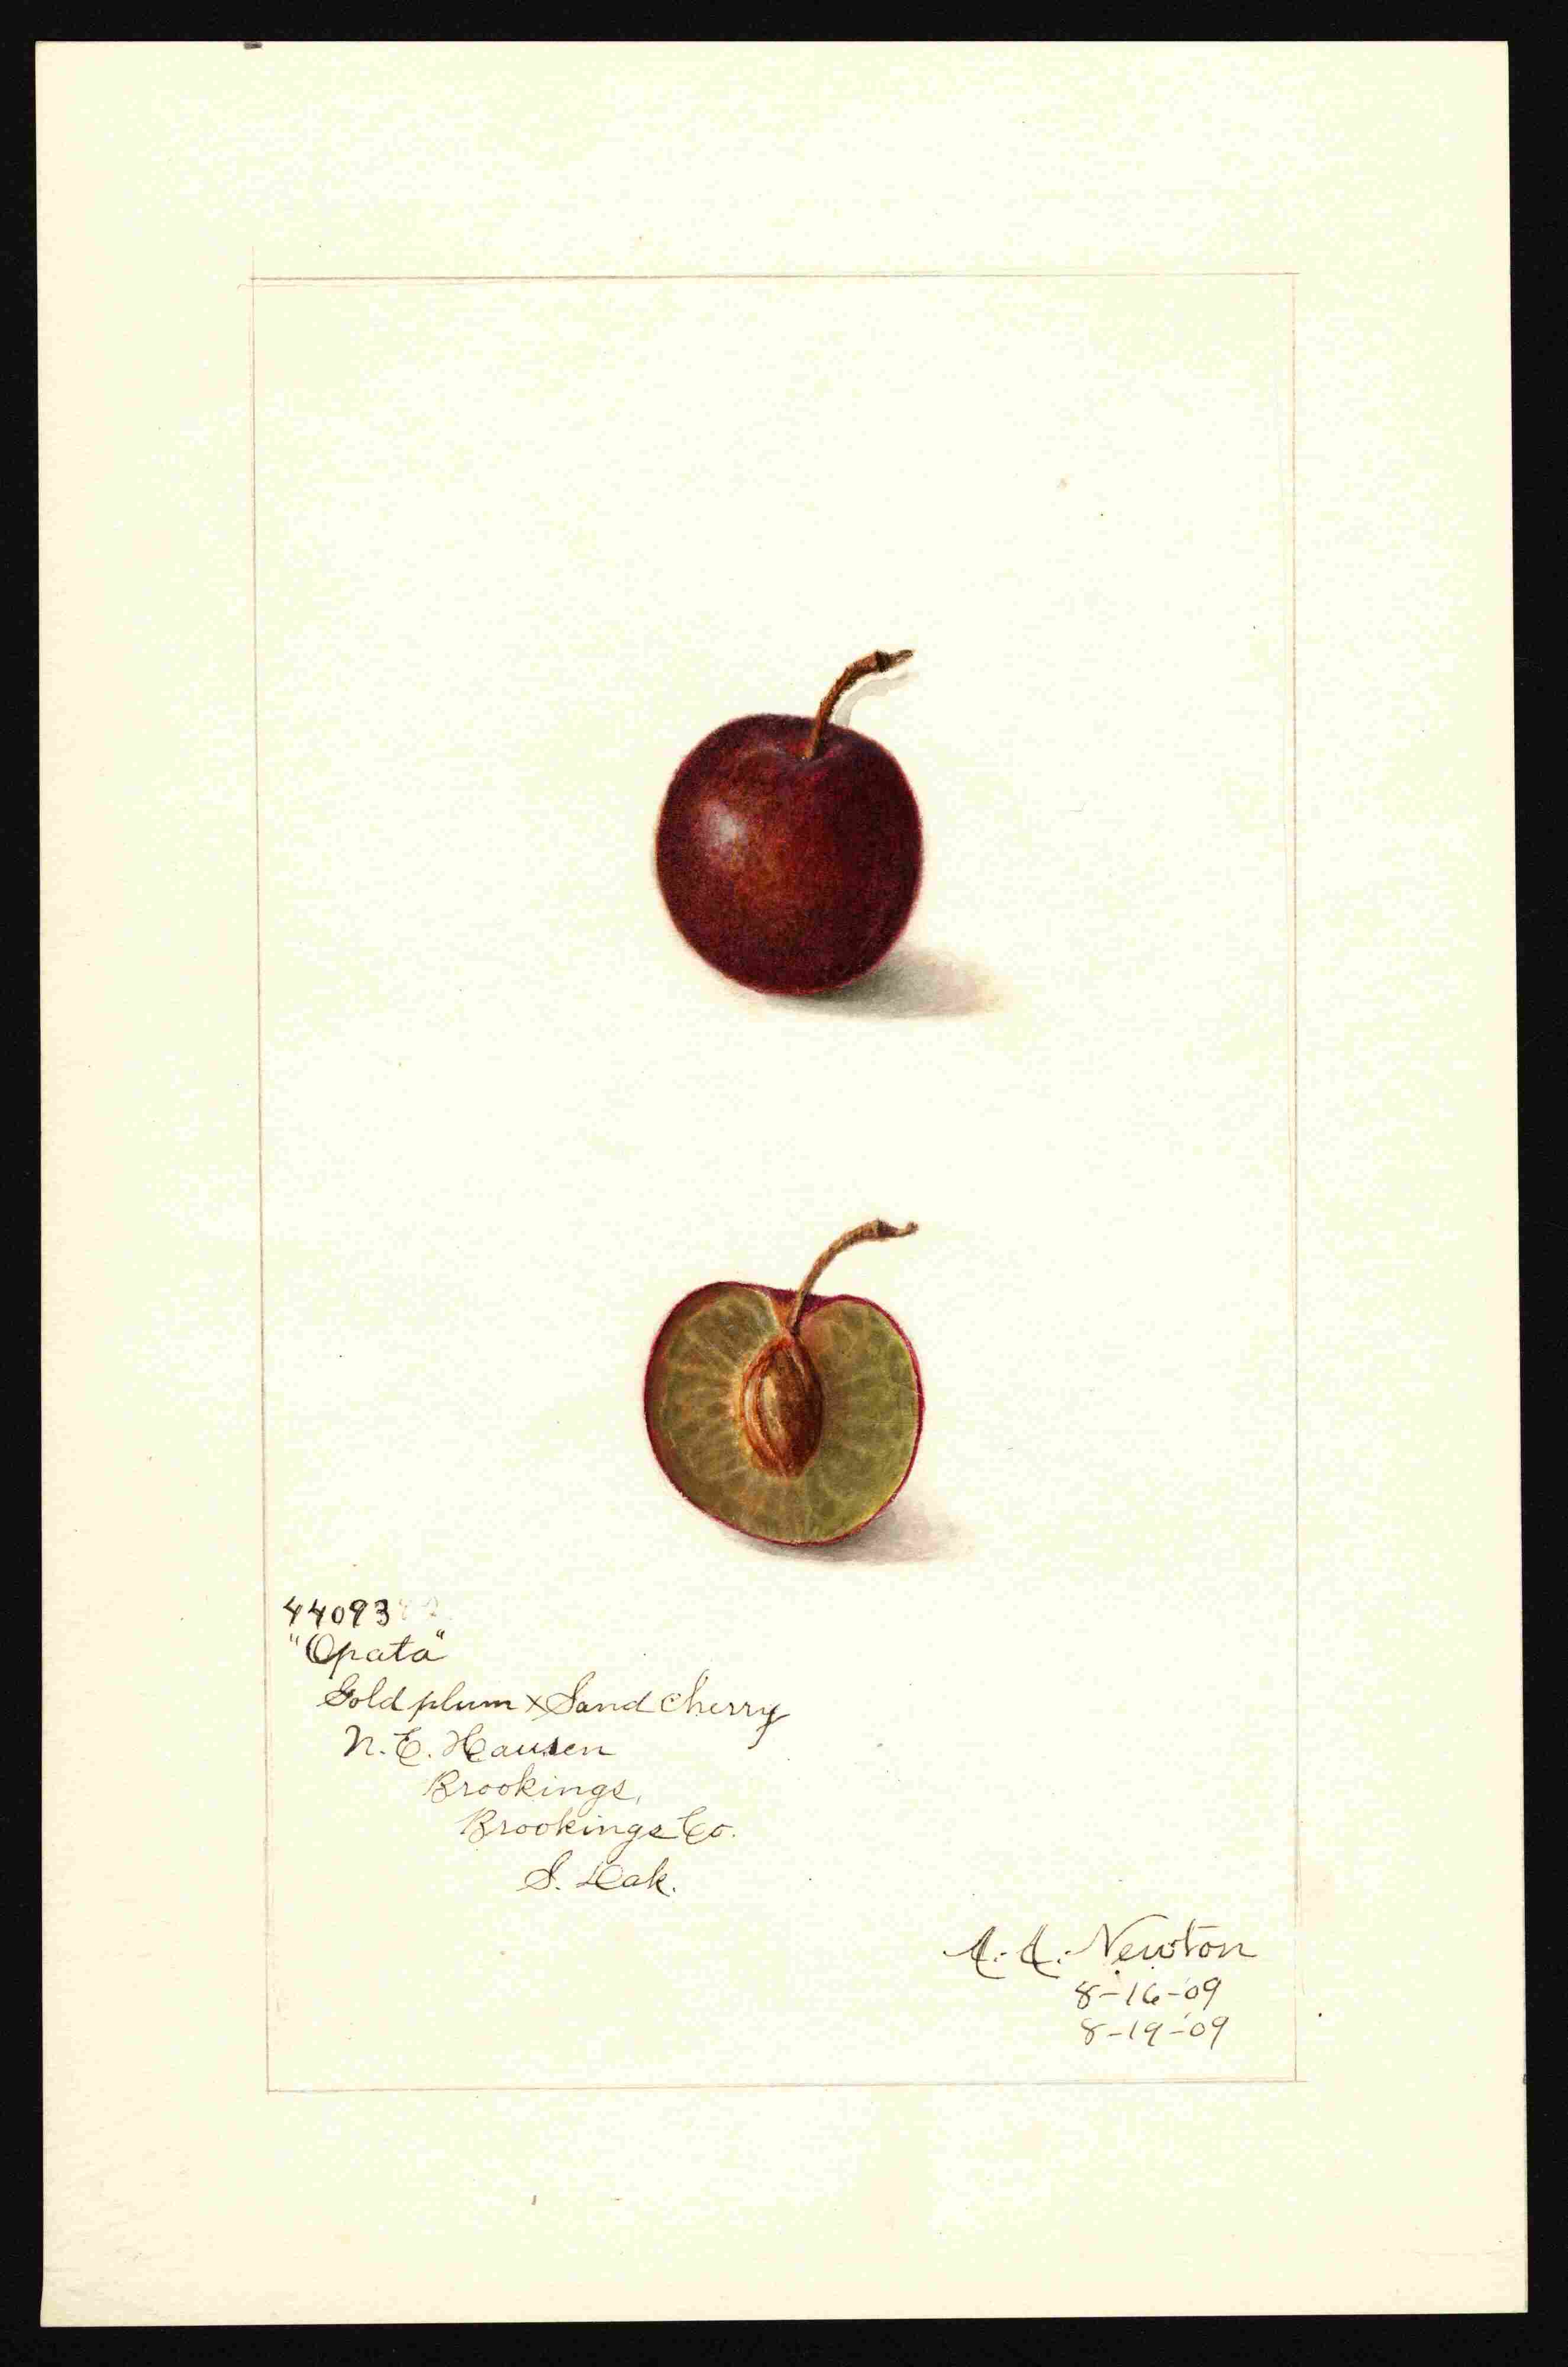 44093
"Opata"
Gold plum x Sand Cherry
N. E. Hansen
Brookings,
Brookings Co.
S. Dak.
A. A. Newton
8-16-'09
8-19-'09